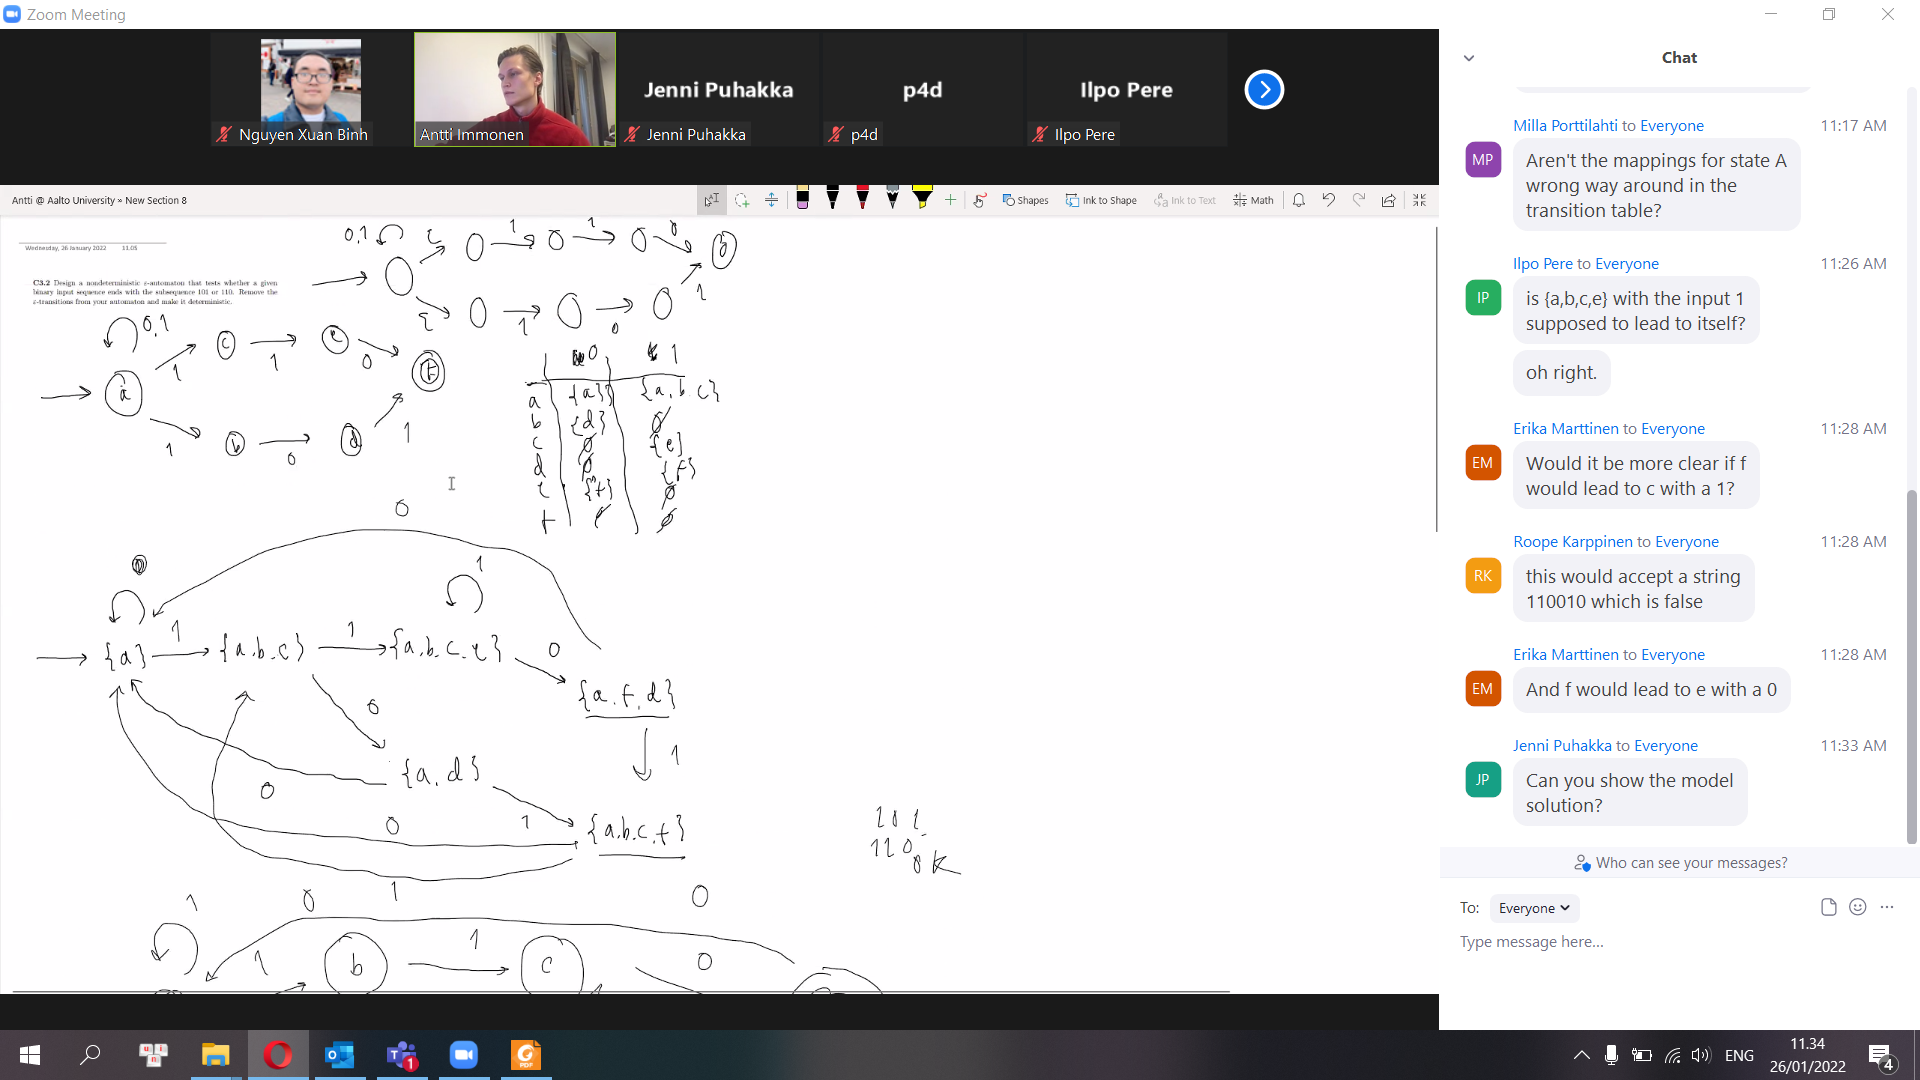 Zoom Meeting
Nguyen Xuan Binh
Antti Immonen
Jenni Puhakka
Jenni Puhakka
p4d
p4d
Ilpo Pere
Ilpo Pere
Antti @ Aalto University » New Section 8
Shapes
Ink to Shape
Ink to Text
Math
Wednesday, 26 January 2022 11.05
C3.2 Design a nondeterministic ε-automaton that tests whether a given
binary input sequence ends with the subsequence 101 or 110. Remove the
ε-transitions from your automaton and make it deterministic.
0,1 ε 1 1 0
ε 1 0 1
0,1
a 1 c 1 e 0 f
1 b 0 d 1
0 1
a {a} {a,b,c}
b {d} ∅
c ∅ {e}
d ∅ {f}
e {f} ∅
f ∅ ∅
0
0 1
{a} 1 {a,b,c} 1 {a,b,c,e} 0
{a,f,d}
0 1
{a,d}
0 0 1 {a,b,c,f}
1
101
110
OK
1 0 0
1 b 1 c 0
Chat
Milla Porttilahti to Everyone 11:17 AM
MP
Aren't the mappings for state A
wrong way around in the
transition table?
Ilpo Pere to Everyone 11:26 AM
IP
is {a,b,c,e} with the input 1
supposed to lead to itself?
oh right.
Erika Marttinen to Everyone 11:28 AM
EM
Would it be more clear if f
would lead to c with a 1?
Roope Karppinen to Everyone 11:28 AM
RK
this would accept a string
110010 which is false
Erika Marttinen to Everyone 11:28 AM
EM
And f would lead to e with a 0
Jenni Puhakka to Everyone 11:33 AM
JP
Can you show the model
solution?
Who can see your messages?
To: Everyone
Type message here...
ENG
11.34
26/01/2022
4
1
PDF